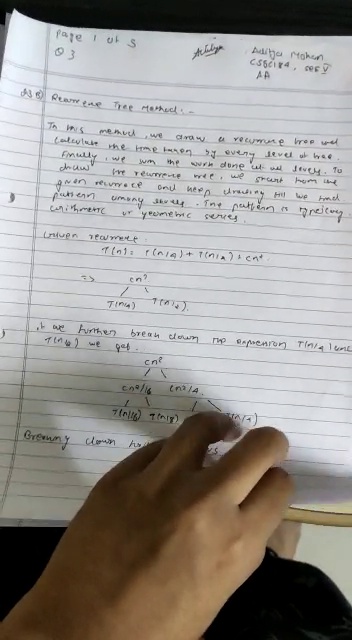 Page 1 of 5
Q 3
Aditya Mohan
CSE184, sem V
AA
Recurrence Tree Method:-
In this method, we draw a recurrence tree and
calculate the time taken by every level of tree.
Finally, we sum the work done at all levels. To
draw the recurrence tree, we start from the
given recurrence and keep drawing till we find
pattern among levels. The pattern is typically
arithmetic or geometric series.
Given recurrence:
T(n) = T(n/4) + T(n/2) + cn²
=> cn²
T(n/4) T(n/2)
If we further break down the expression T(n/4) and
T(n/2) we get.
cn²
cn²/16 cn²/4
T(n/16) T(n/8) T(n/4)
Breaking down